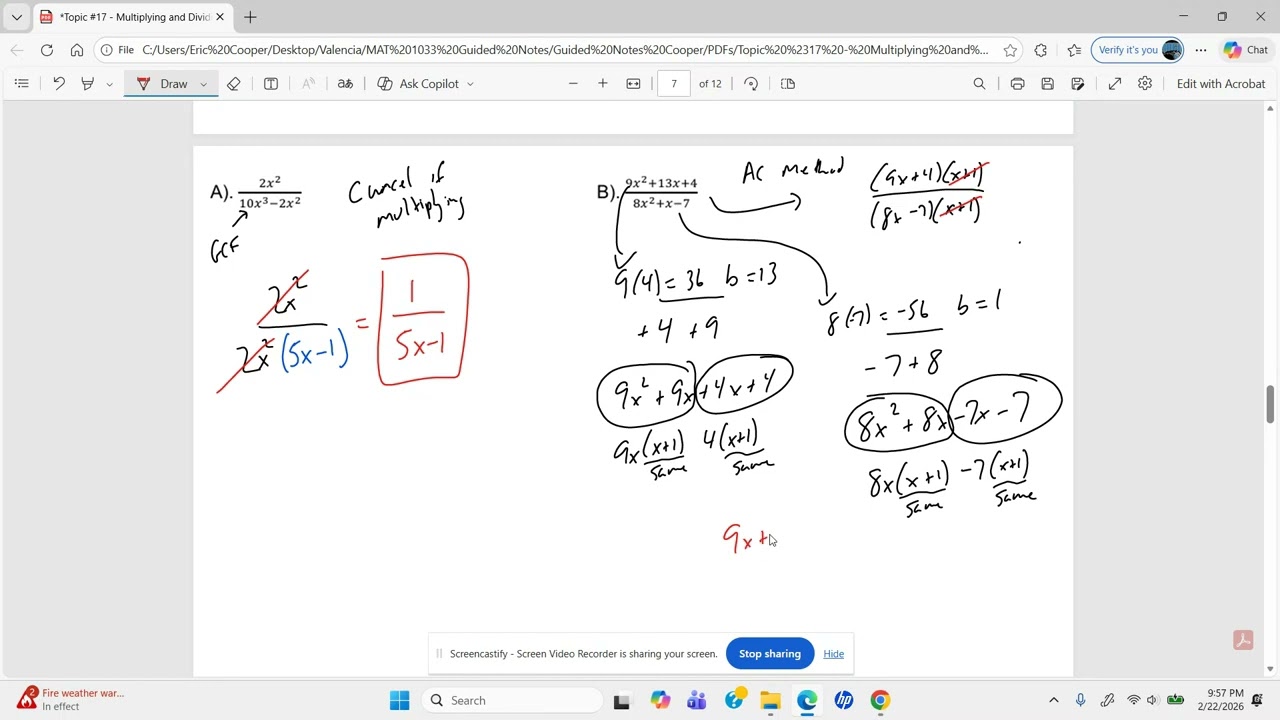 *Topic #17 - Multiplying and Dividi
File C:/Users/Eric%20Cooper/Desktop/Valencia/MAT%201033%20Guided%20Notes/Guided%20Notes%20Cooper/PDFs/Topic%20%2317%20-%20Multiplying%20and%...
Verify it's you
Chat
Draw
Ask Copilot
7 of 12
Edit with Acrobat
A). 2x²
10x³−2x²
GCF
Cancel if
multiplying
2x²
2x² (5x−1)
= 1
5x−1
B). 9x²+13x+4
8x²+x−7
AC method
(9x+4)(x+1)
(8x−7)(x+1)
9(4) = 36 b=13
+4 +9
9x² + 9x +4x+4
9x(x+1) 4(x+1)
same same
8(-7) = -56 b=1
-7+8
8x² + 8x -7x - 7
8x(x+1) -7(x+1)
same same
9x+
Screencastify - Screen Video Recorder is sharing your screen.
Stop sharing
Hide
2
Fire weather war...
In effect
Search
9:57 PM
2/22/2026